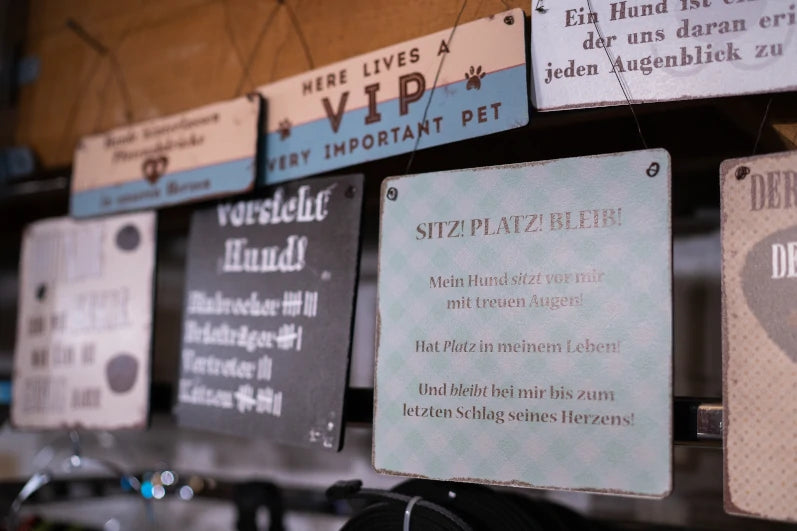 Ein Hund ist
der uns daran
jeden Augenblick zu
HERE LIVES A
VIP
VERY IMPORTANT PET
Hunde hinterlassen
Pfotenabdrücke
in unseren Herzen
Vorsicht
Hund!
Einbrecher
Briefträger
Vertreter
Katzen
SITZ! PLATZ! BLEIB!
Mein Hund sitzt vor mir
mit treuen Augen!
Hat Platz in meinem Leben!
Und bleibt bei mir bis zum
letzten Schlag seines Herzens!
DER